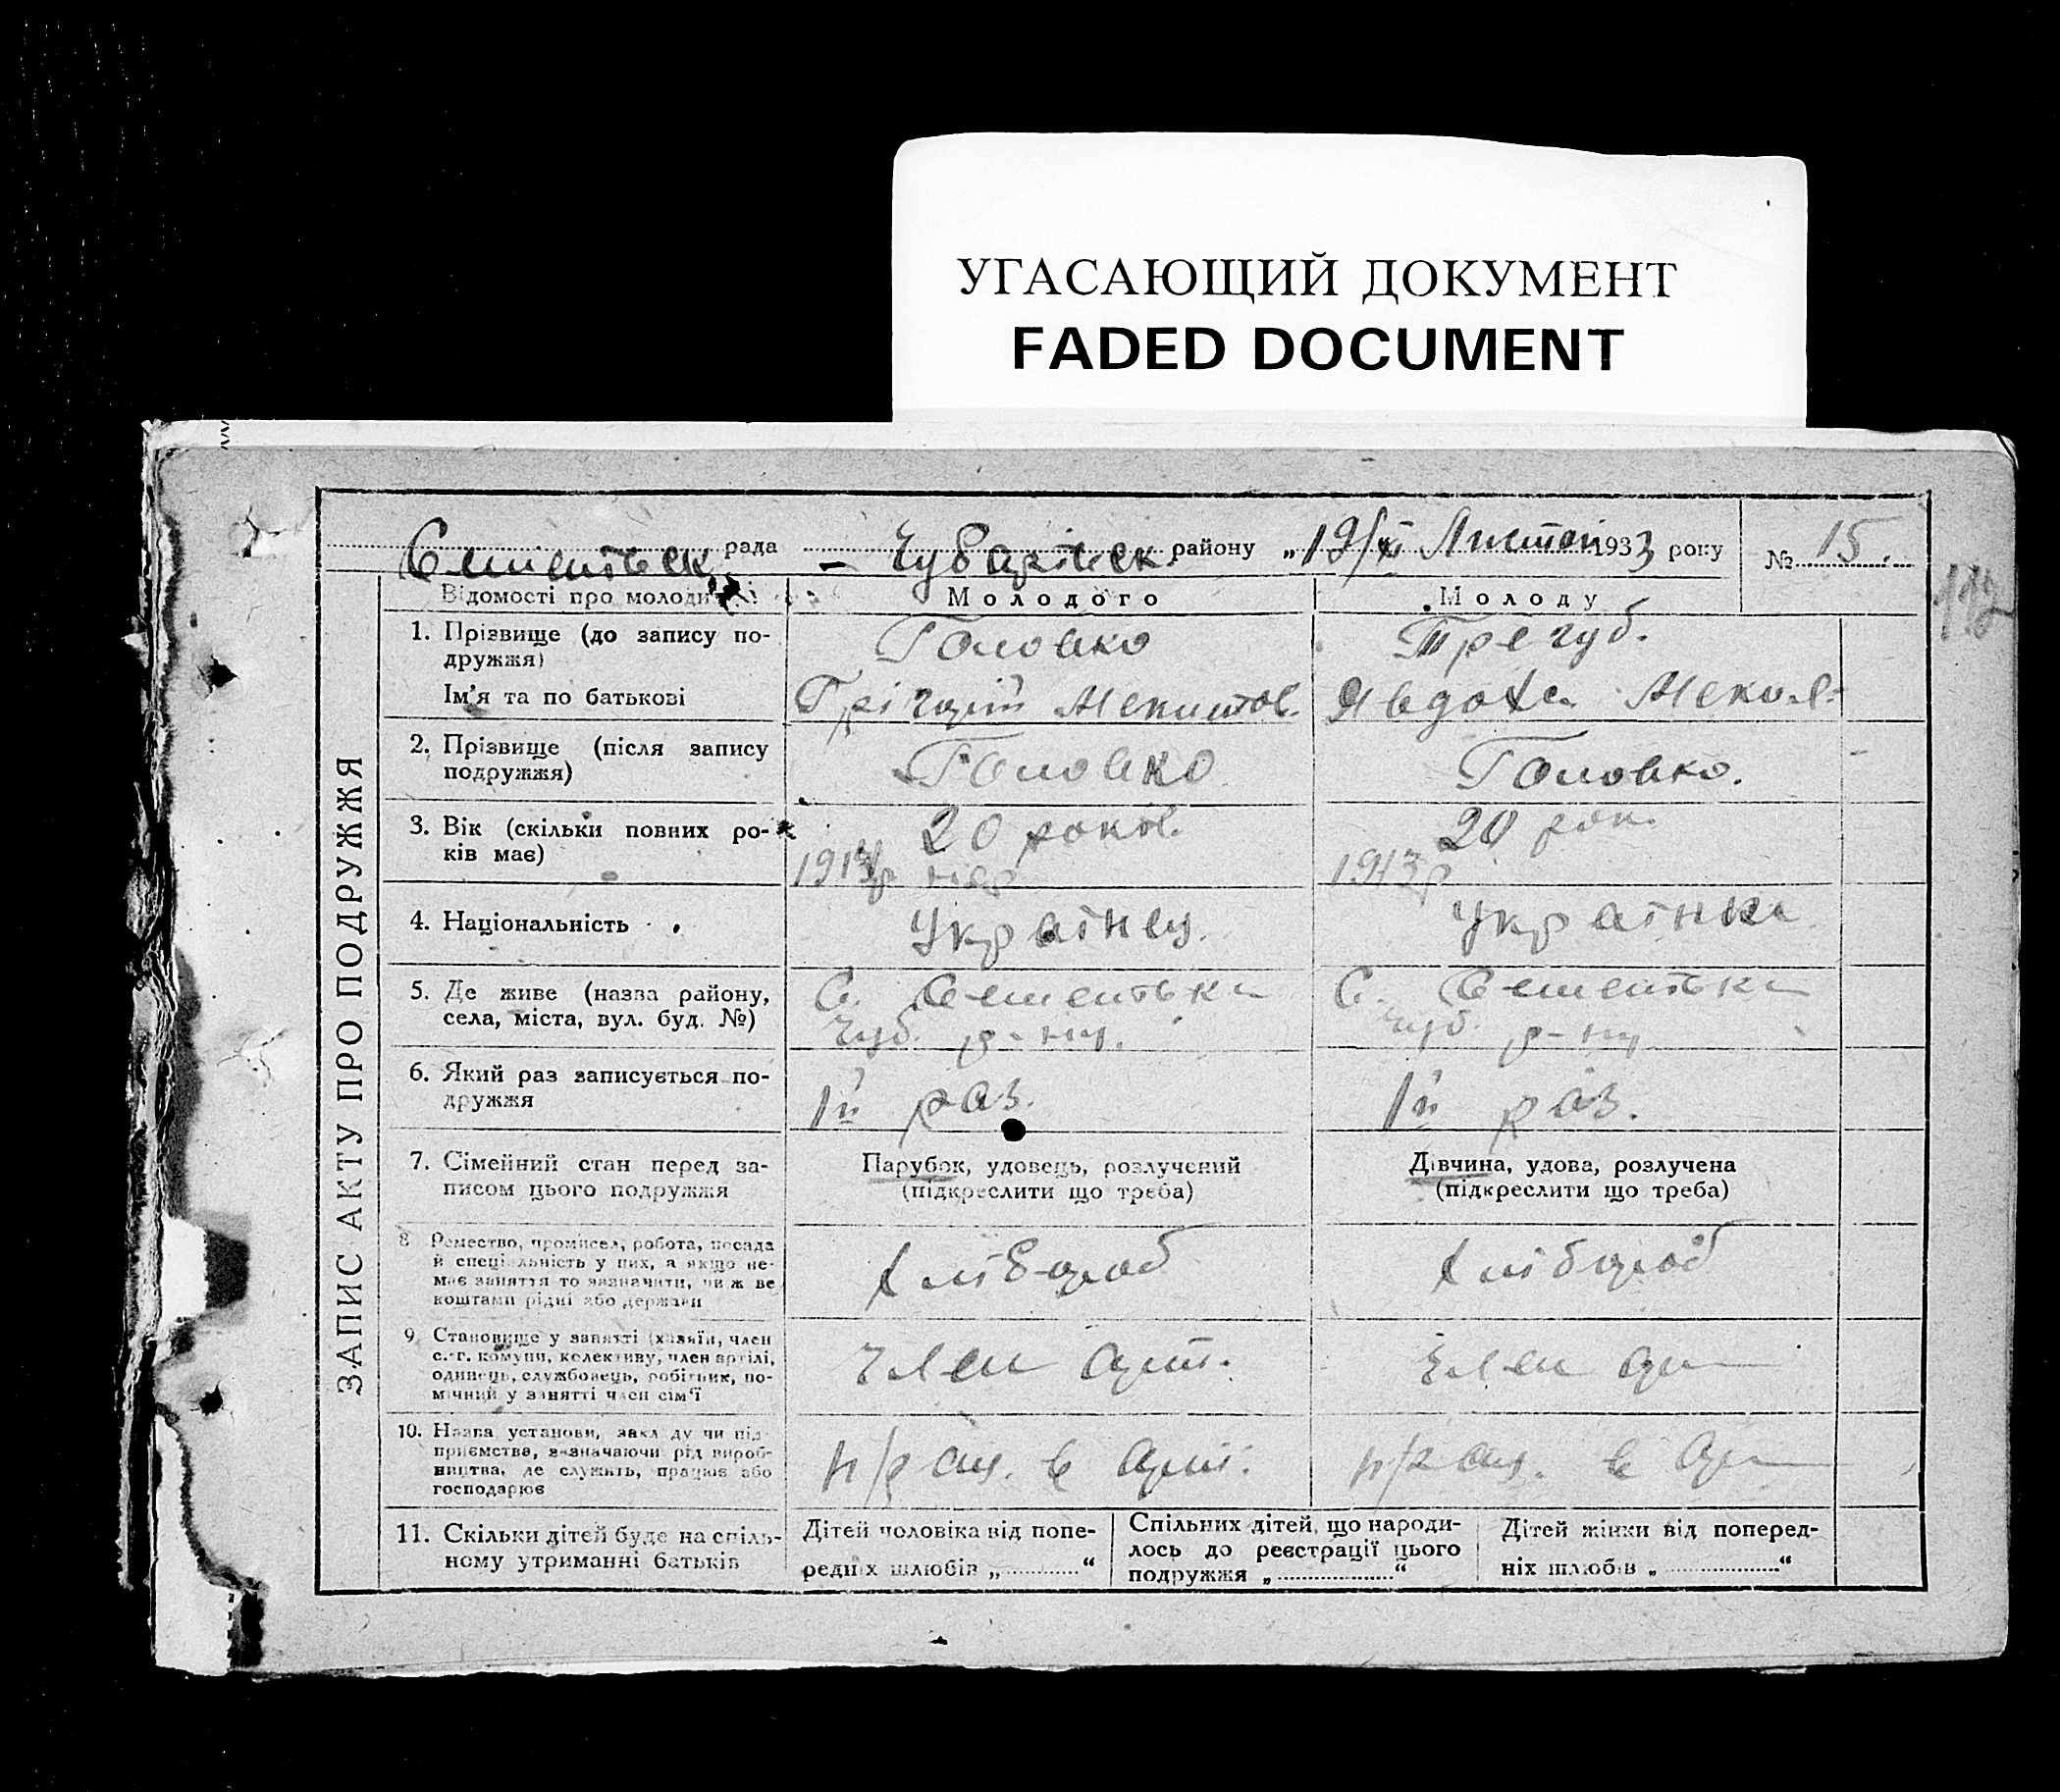 УГАСАЮЩИЙ ДОКУМЕНТ
FADED DOCUMENT
ЗАПИС АКТУ ПРО ПОДРУЖЖЯ
Семенівск. рада – Чубарівск. району „19/XI Листоп 1933 року № 15.
112
Відомості про молодих Молодого Молоду
1. Прізвище (до запису по- Головко Трегуб.
дружжя)
Ім'я та по батькові Грігорій Микитов. Явдоха Микол.
2. Прізвище (після запису Головко Головко.
подружжя)
3. Вік (скільки повних ро- 20 років. 20 рок.
ків має) 1913р 1913р
4. Національність Українец. Українка
5. Де живе (назва району, С. Семенівка С. Семенівка
села, міста, вул. буд. №) Чуб. р-ну. Чуб. р-ну
6. Який раз записується по- 1й раз. 1й раз.
дружжя
7. Сімейний стан перед за- Парубок, удовець, розлучений Дівчина, удова, розлучена
писом цього подружжя (підкреслити що треба) (підкреслити що треба)
8 Ремество, промисел, робота, посада Хліб ороб Хлібороб
й спеціальність у них, а якщо не-
має заняття то зазначити, чи ж ве
коштами рідні або держави
9. Становище у занятті (хазяїн, член Член арт. Член ар
с.-г. комуни, колективу, член артілі,
одинець, службовець, робітник, по-
мічний у занятті член сім'ї
10. Назва установи, закладу чи під- в Арт. в Ар
приємства, зазначаючи рід вироб-
ництва, де служить, працює або
господарює
11. Скільки дітей буде на спіль- Дітей чоловіка від попе- Спільних дітей, що народи- Дітей жінки від поперед-
ному утриманні батьків редніх шлюбів „............“ лось до реєстрації цього ніх шлюбів „..................“
подружжя „..................“